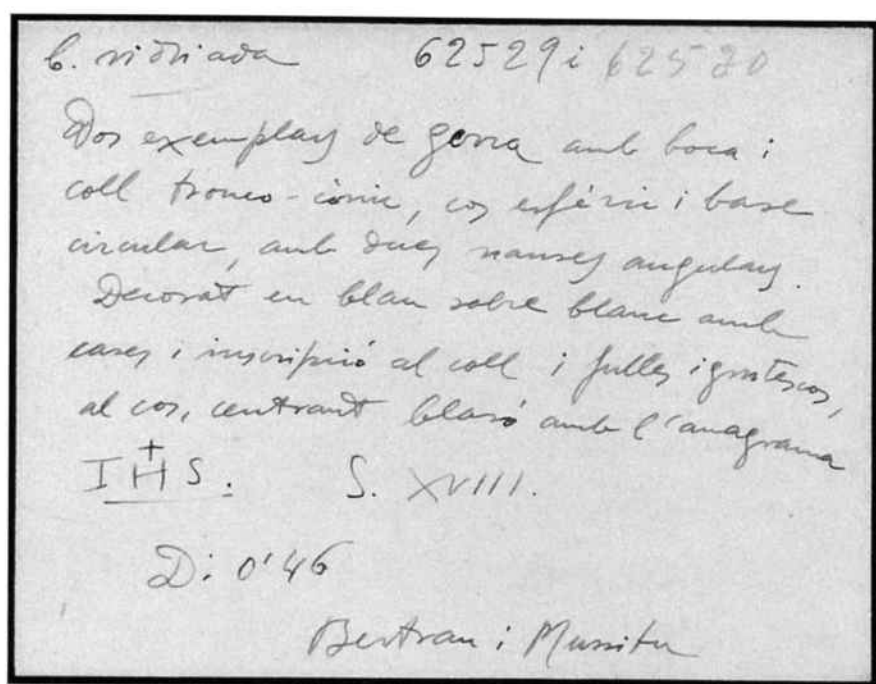 C. vidriada 62529 i 62530
Dos exemplars de gerra amb boca i
coll tronco-cònic, cos esfèric i base
circular, amb dues nanses angulars.
Decorat en blau sobre blanc amb
cases i inscripció al coll i fulles i grotescos,
al cos, centrant blasó amb l'anagrama
IHS. S. XVIII.
D: 0'46
Bertran i Musitu